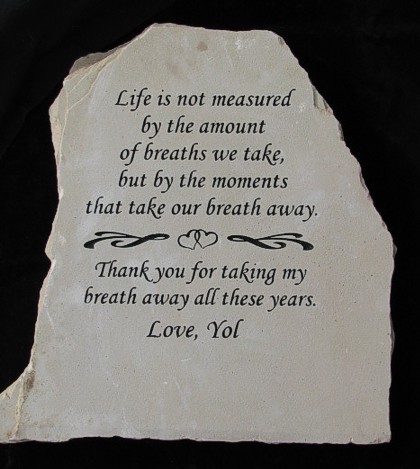 Life is not measured
by the amount
of breaths we take,
but by the moments
that take our breath away.
Thank you for taking my
breath away all these years.
Love, Yol